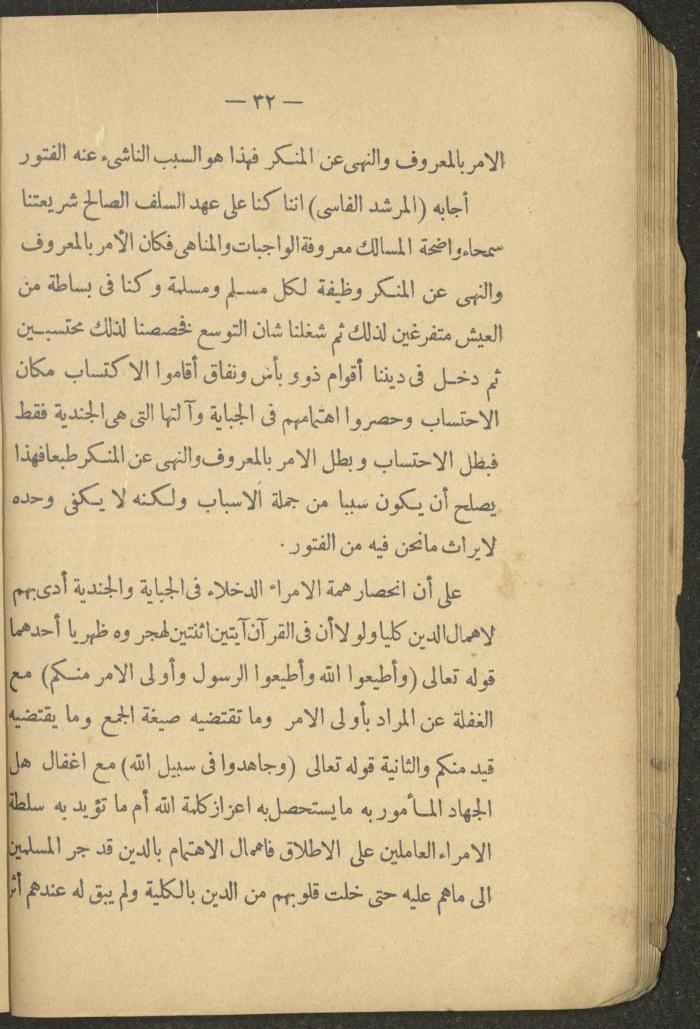 — ٣٢ —
الامر بالمعروف والنهى عن المنكر فهذا هو السبب الناشىء عنه الفتور
أجابه (المرشد الفاسى) اننا كنا على عهد السلف الصالح شريعتنا
سمحاء واضحة المسالك معروفة الواجبات والمناهى فكان الأمر بالمعروف
والنهى عن المنكر وظيفة لكل مسلم ومسلمة وكنا فى بساطة من
العيش متفرغين لذلك ثم شغلنا شان التوسع فخصصنا لذلك محتسبين
ثم دخل فى ديننا أقوام ذوو بأس ونفاق أقاموا الاكتساب مكان
الاحتساب وحصروا اهتمامهم فى الجباية وآلتها التى هى الجندية فقط
فبطل الاحتساب وبطل الامر بالمعروف والنهى عن المنكر طبعا فهذا
يصلح أن يكون سببا من جملة الاسباب ولكنه لا يكفى وحده
لايراث مانحن فيه من الفتور .
على أن انحصار همة الامراء الدخلاء فى الجباية والجندية أدى بهم
لاهمال الدين كليا ولولا أن فى القرآن آيتين اثنتين لهجروه ظهريا أحدهما
قوله تعالى (وأطيعوا الله وأطيعوا الرسول وأولى الامر منكم) مع
الغفلة عن المراد بأولى الامر وما تقتضيه صيغة الجمع وما يقتضيه
قيد منكم والثانية قوله تعالى (وجاهدوا فى سبيل الله) مع اغفال هل
الجهاد المأمور به ما يستحصل به اعزاز كلمة الله أم ما تؤيد به سلطة
الامراء العاملين على الاطلاق فاهمال الاهتمام بالدين قد جر المسلمين
الى ماهم عليه حتى خلت قلوبهم من الدين بالكلية ولم يبق له عندهم أثر